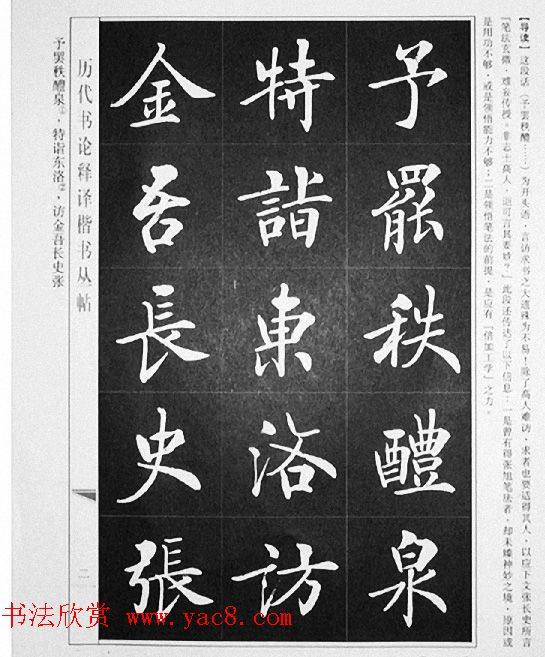 【导读】这段话（予罢秩醴……）为开头语，言访求书之大道殊为不易！除了高人难访，求者也要适得其人，以应下文张长史所言
『笔法玄微，难妄传授。非志士高人，讵可言其要妙？』此段还传达了以下信息：一是曾有得张旭笔法者，却未臻神妙之境，原因或
是用功不够，或是领悟能力不够；二是领悟笔法的前提，是应有『倍加工学』之力。
予罷秩醴泉
特詣東洛訪
金吾長史張
历代书论释译楷书丛帖
二
予罢秩醴泉①，特诣东洛②，访金吾长史张
书法欣赏 www.yac8.com